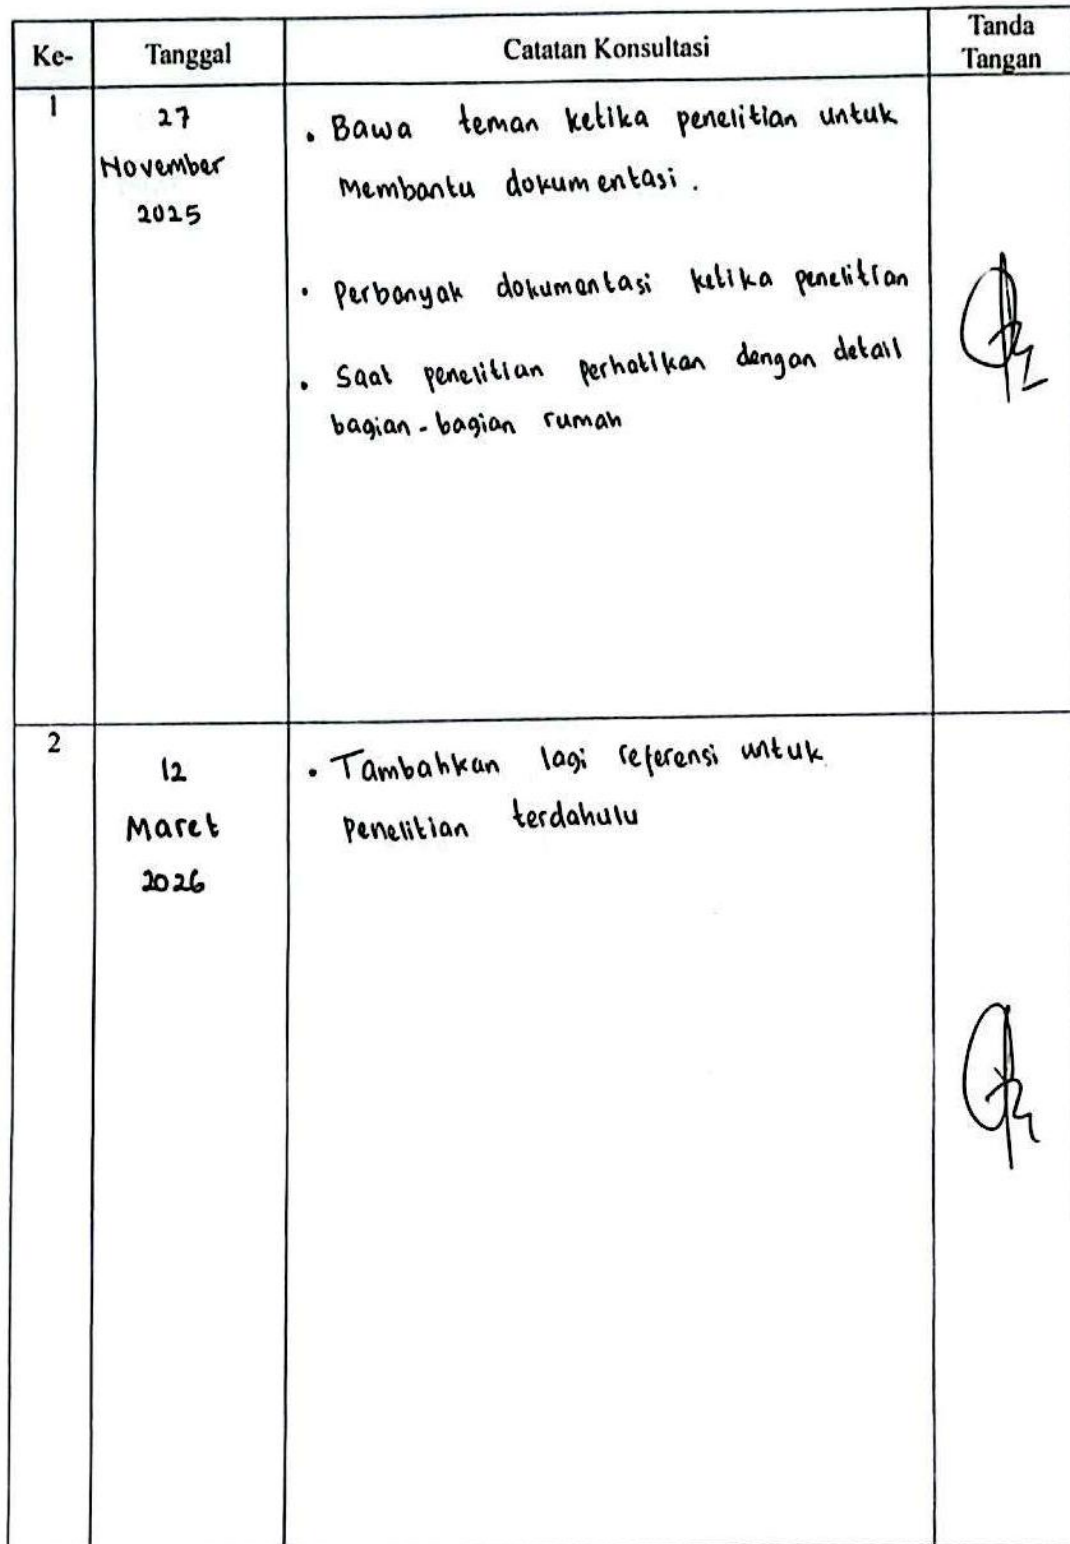 Ke- Tanggal Catatan Konsultasi Tanda Tangan
1
27
November
2025
• Bawa teman ketika penelitian untuk
Membantu dokumentasi.
• Perbanyak dokumentasi ketika penelitian
• Saat penelitian perhatikan dengan detail
bagian-bagian rumah
2
12
Maret
2026
• Tambahkan lagi referensi untuk
Penelitian terdahulu